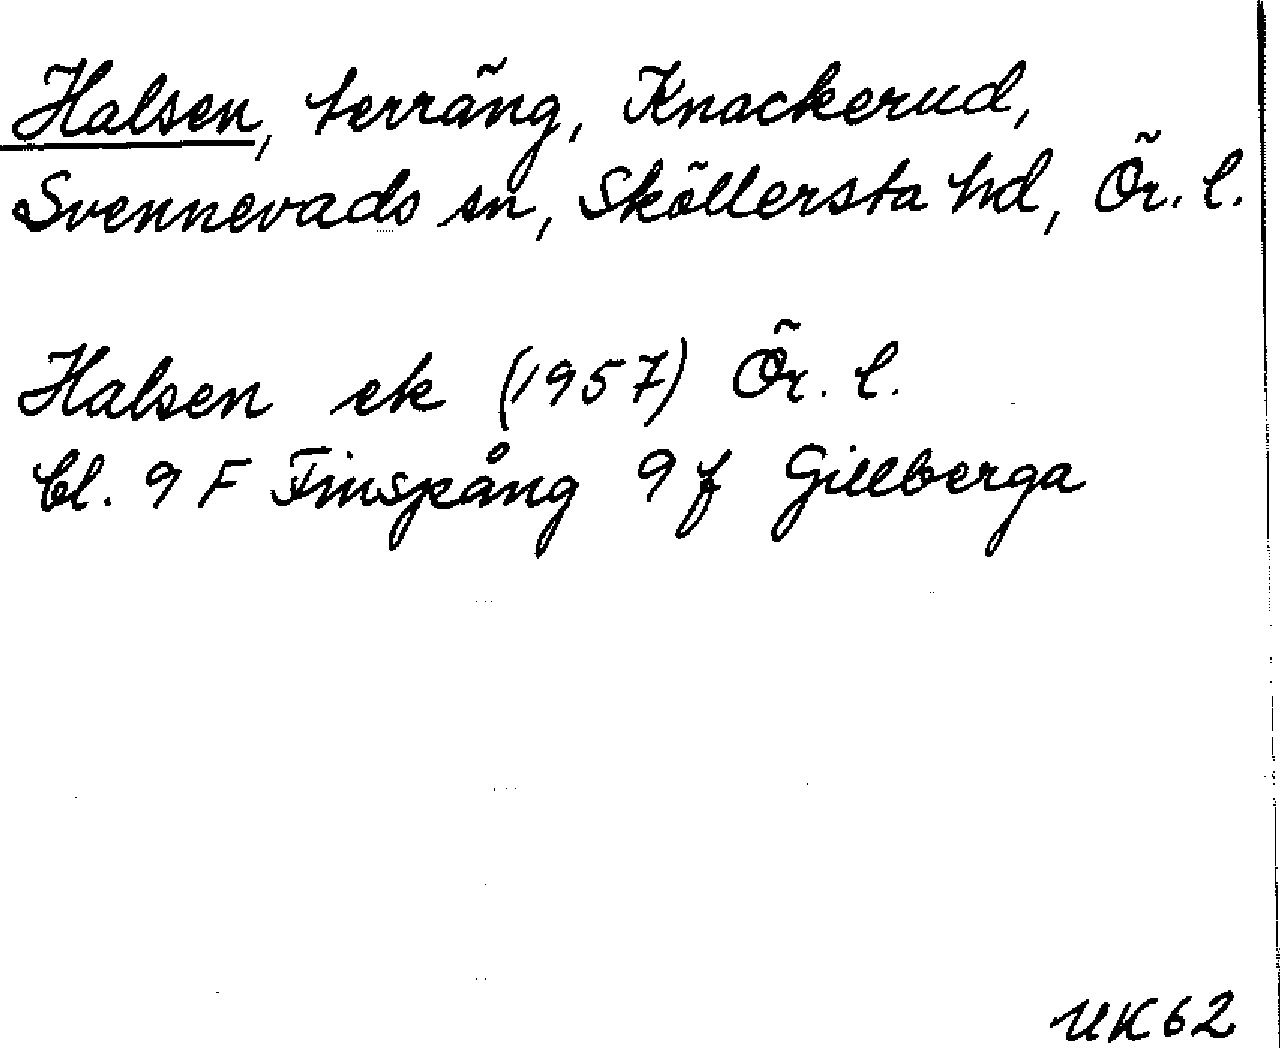 Halsen, terräng, Knackerud,
Svennevads sn, Sköllersta hd, Ör. l.
Halsen ek (1957) Ör. l.
bl. 9 F Finspång 9 f Gillberga
UK 62